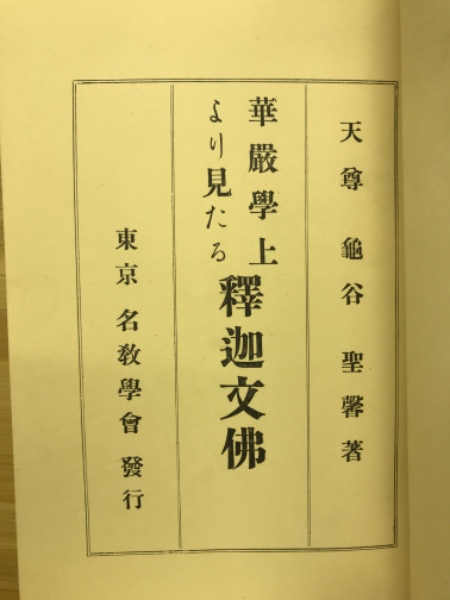 天尊 龜谷 聖馨著
華嚴學上
より見たる
釋迦文佛
東京 名教學會 發行